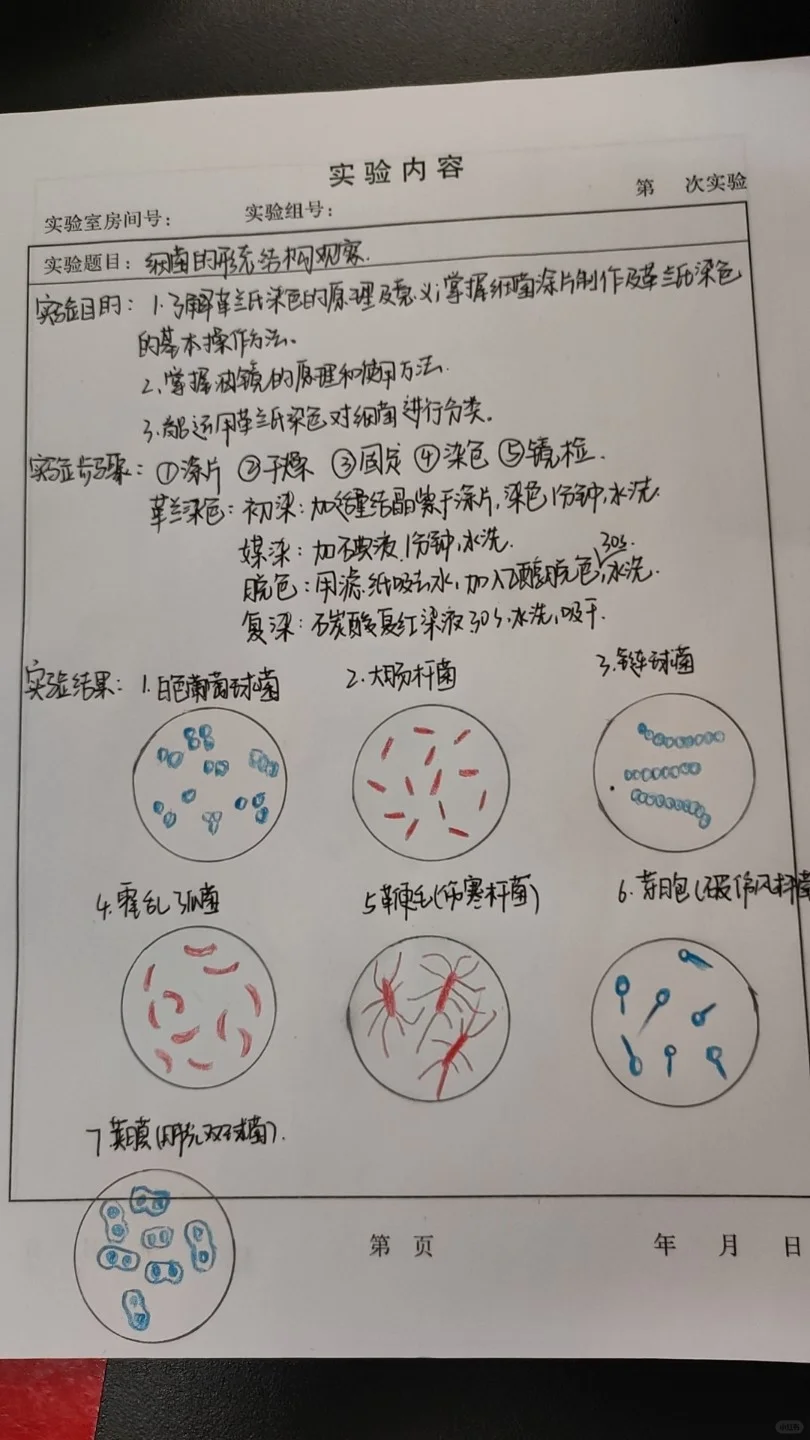 实验内容
第 次实验
实验室房间号： 实验组号：
实验题目：细菌的形态结构观察.
实验目的：1.了解革兰氏染色的原理及意义;掌握细菌涂片制作及革兰氏染色
的基本操作方法。
2、掌握油镜的原理和使用方法.
3.能运用革兰氏染色对细菌进行分类。
实验步骤：①涂片 ②干燥 ③固定 ④染色 ⑤镜检.
革兰染色：初染：加适量结晶紫于涂片,染色1分钟,水洗.
媒染：加碘液,1分钟,水洗.
30s.
脱色：用滤纸吸去水,加入乙醇脱色,水洗.
复染：石炭酸复红染液30s,水洗,吸干.
实验结果：1.白色葡萄球菌 2.大肠杆菌 3.链球菌
4.霍乱弧菌 5鞭毛(伤寒杆菌) 6.芽胞(破伤风杆菌
7荚膜(肺炎双球菌).
第 页 年 月 日
小红书